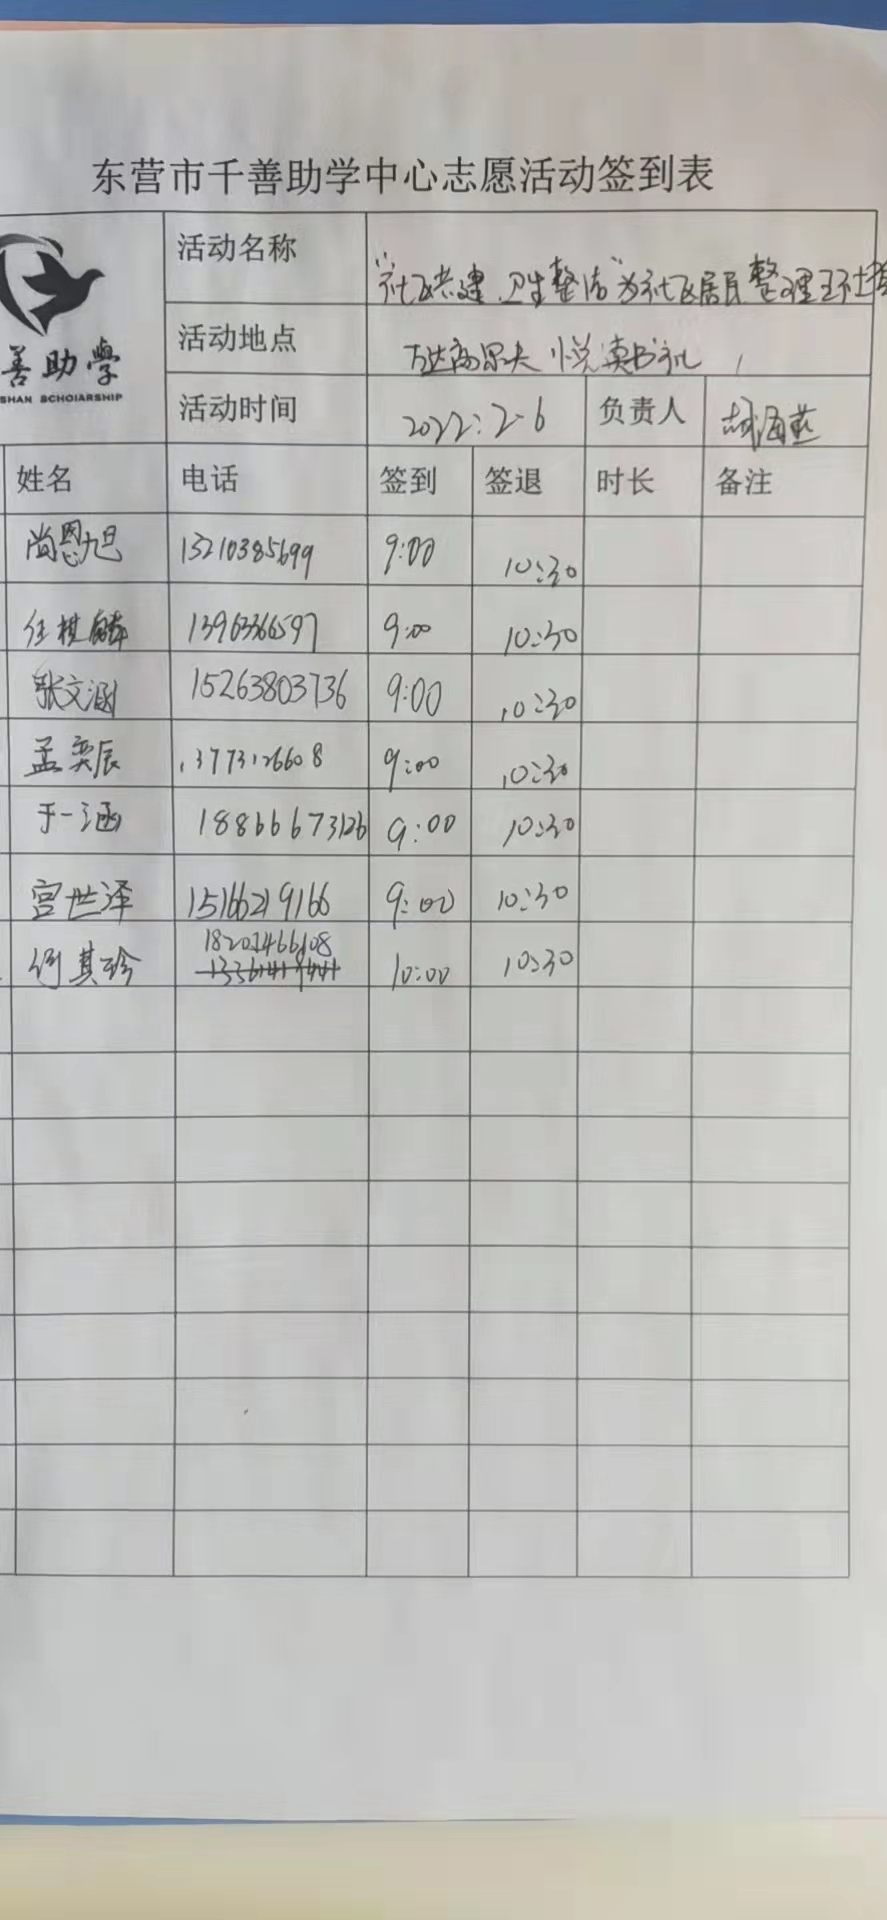 东营市千善助学中心志愿活动签到表
善助學
SHAN SCHOlARSHIP
活动名称 "社区共建 卫生整洁"为社区居民整理环境
活动地点 万达高尔夫 悦读书社
活动时间 2022:2-6 负责人 胡海燕
姓名 电话 签到 签退 时长 备注
尚恩旭 13210385699 9:00 10:30
任棋麟 13963366597 9:00 10:30
张文涵 15263803736 9:00 10:30
孟奕辰 13773126608 9:00 10:30
于一涵 18866673126 9:00 10:30
宫世泽 15166219166 9:00 10:30
18201466108
何其珍 10:00 10:30